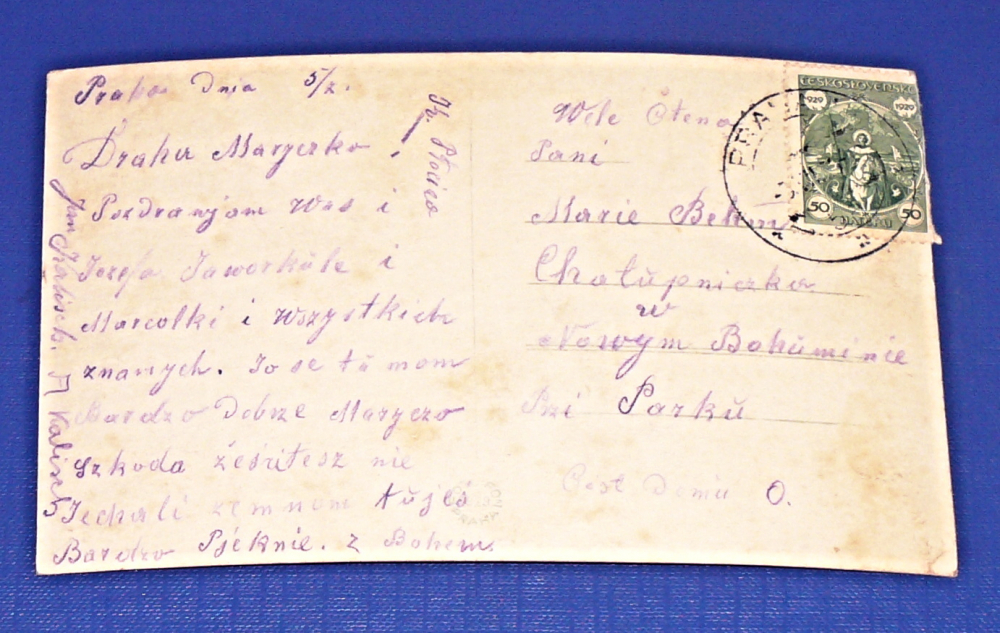 Praha Dnia 5/X.
Draha Maryczko!
Pozdrawjom Was i
Jozefa Jaworkule i
Marcolki i Wszystkich
znamych. Jo se tu mom
Bardzo Dobrze Maryczo
Szkoda żeśćitesz nie
Jechali zemnom tu jes
Bardzo Pjeknie. z Bohem.
Jan Kalisch.
Kalisch
Wele Ctena
Pani
Marie Behum
Chałupniczka
w
Nowym Bohuminie
Pzi Parku
O.
PRAHA
ČESKOSLOVENSKO
929 1929
50 50